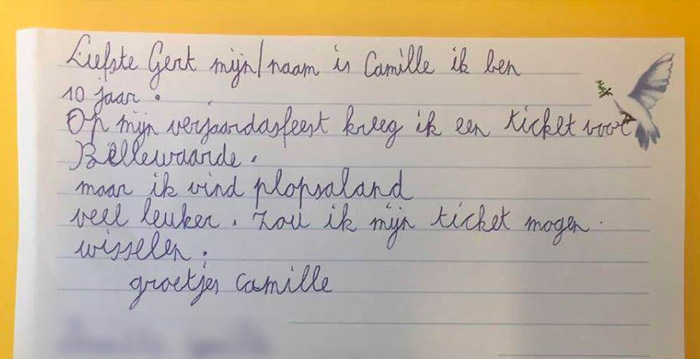 Liefste Gert mijn/naam is Camille ik ben
10 jaar.
Op mijn verjaardasfeest kreeg ik een ticket voor
Bellewaarde.
maar ik vind plopsaland
veel leuker. Zou ik mijn ticket mogen
wisselen.
groetjes Camille